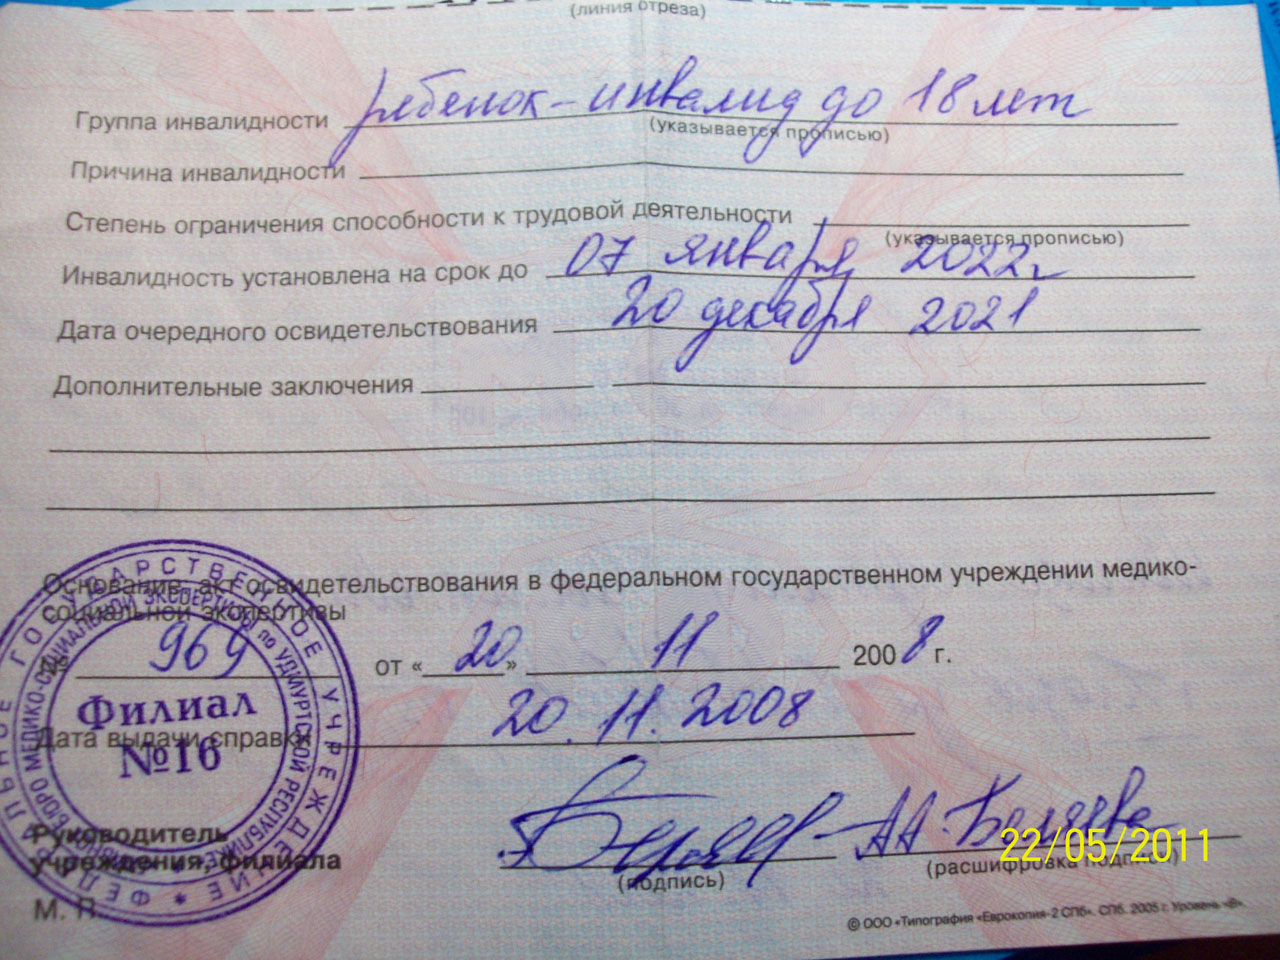 (линия отреза)
Группа инвалидности ребенок-инвалид до 18 лет
(указывается прописью)
Причина инвалидности
Степень ограничения способности к трудовой деятельности
(указывается прописью)
Инвалидность установлена на срок до 07 января 2022г
Дата очередного освидетельствования 20 декабря 2021
Дополнительные заключения
Основание: акт освидетельствования в федеральном государственном учреждении медико-
социальной экспертизы
№ 969 от «20» 11 2008 г.
Дата выдачи справки 20.11.2008
Руководитель
учреждения, филиала
(подпись)
А.А. Беляева
(расшифровка подписи)
М. П.
Филиал
№16
ФЕДЕРАЛЬНОЕ ГОСУДАРСТВЕННОЕ УЧРЕЖДЕНИЕ
БЮРО МЕДИКО-СОЦИАЛЬНОЙ ЭКСПЕРТИЗЫ по УДМУРТСКОЙ РЕСПУБЛИКЕ
22/05/2011
© ООО «Типография «Еврокопия-2 СПб». СПб. 2005 г. Уровень «В».